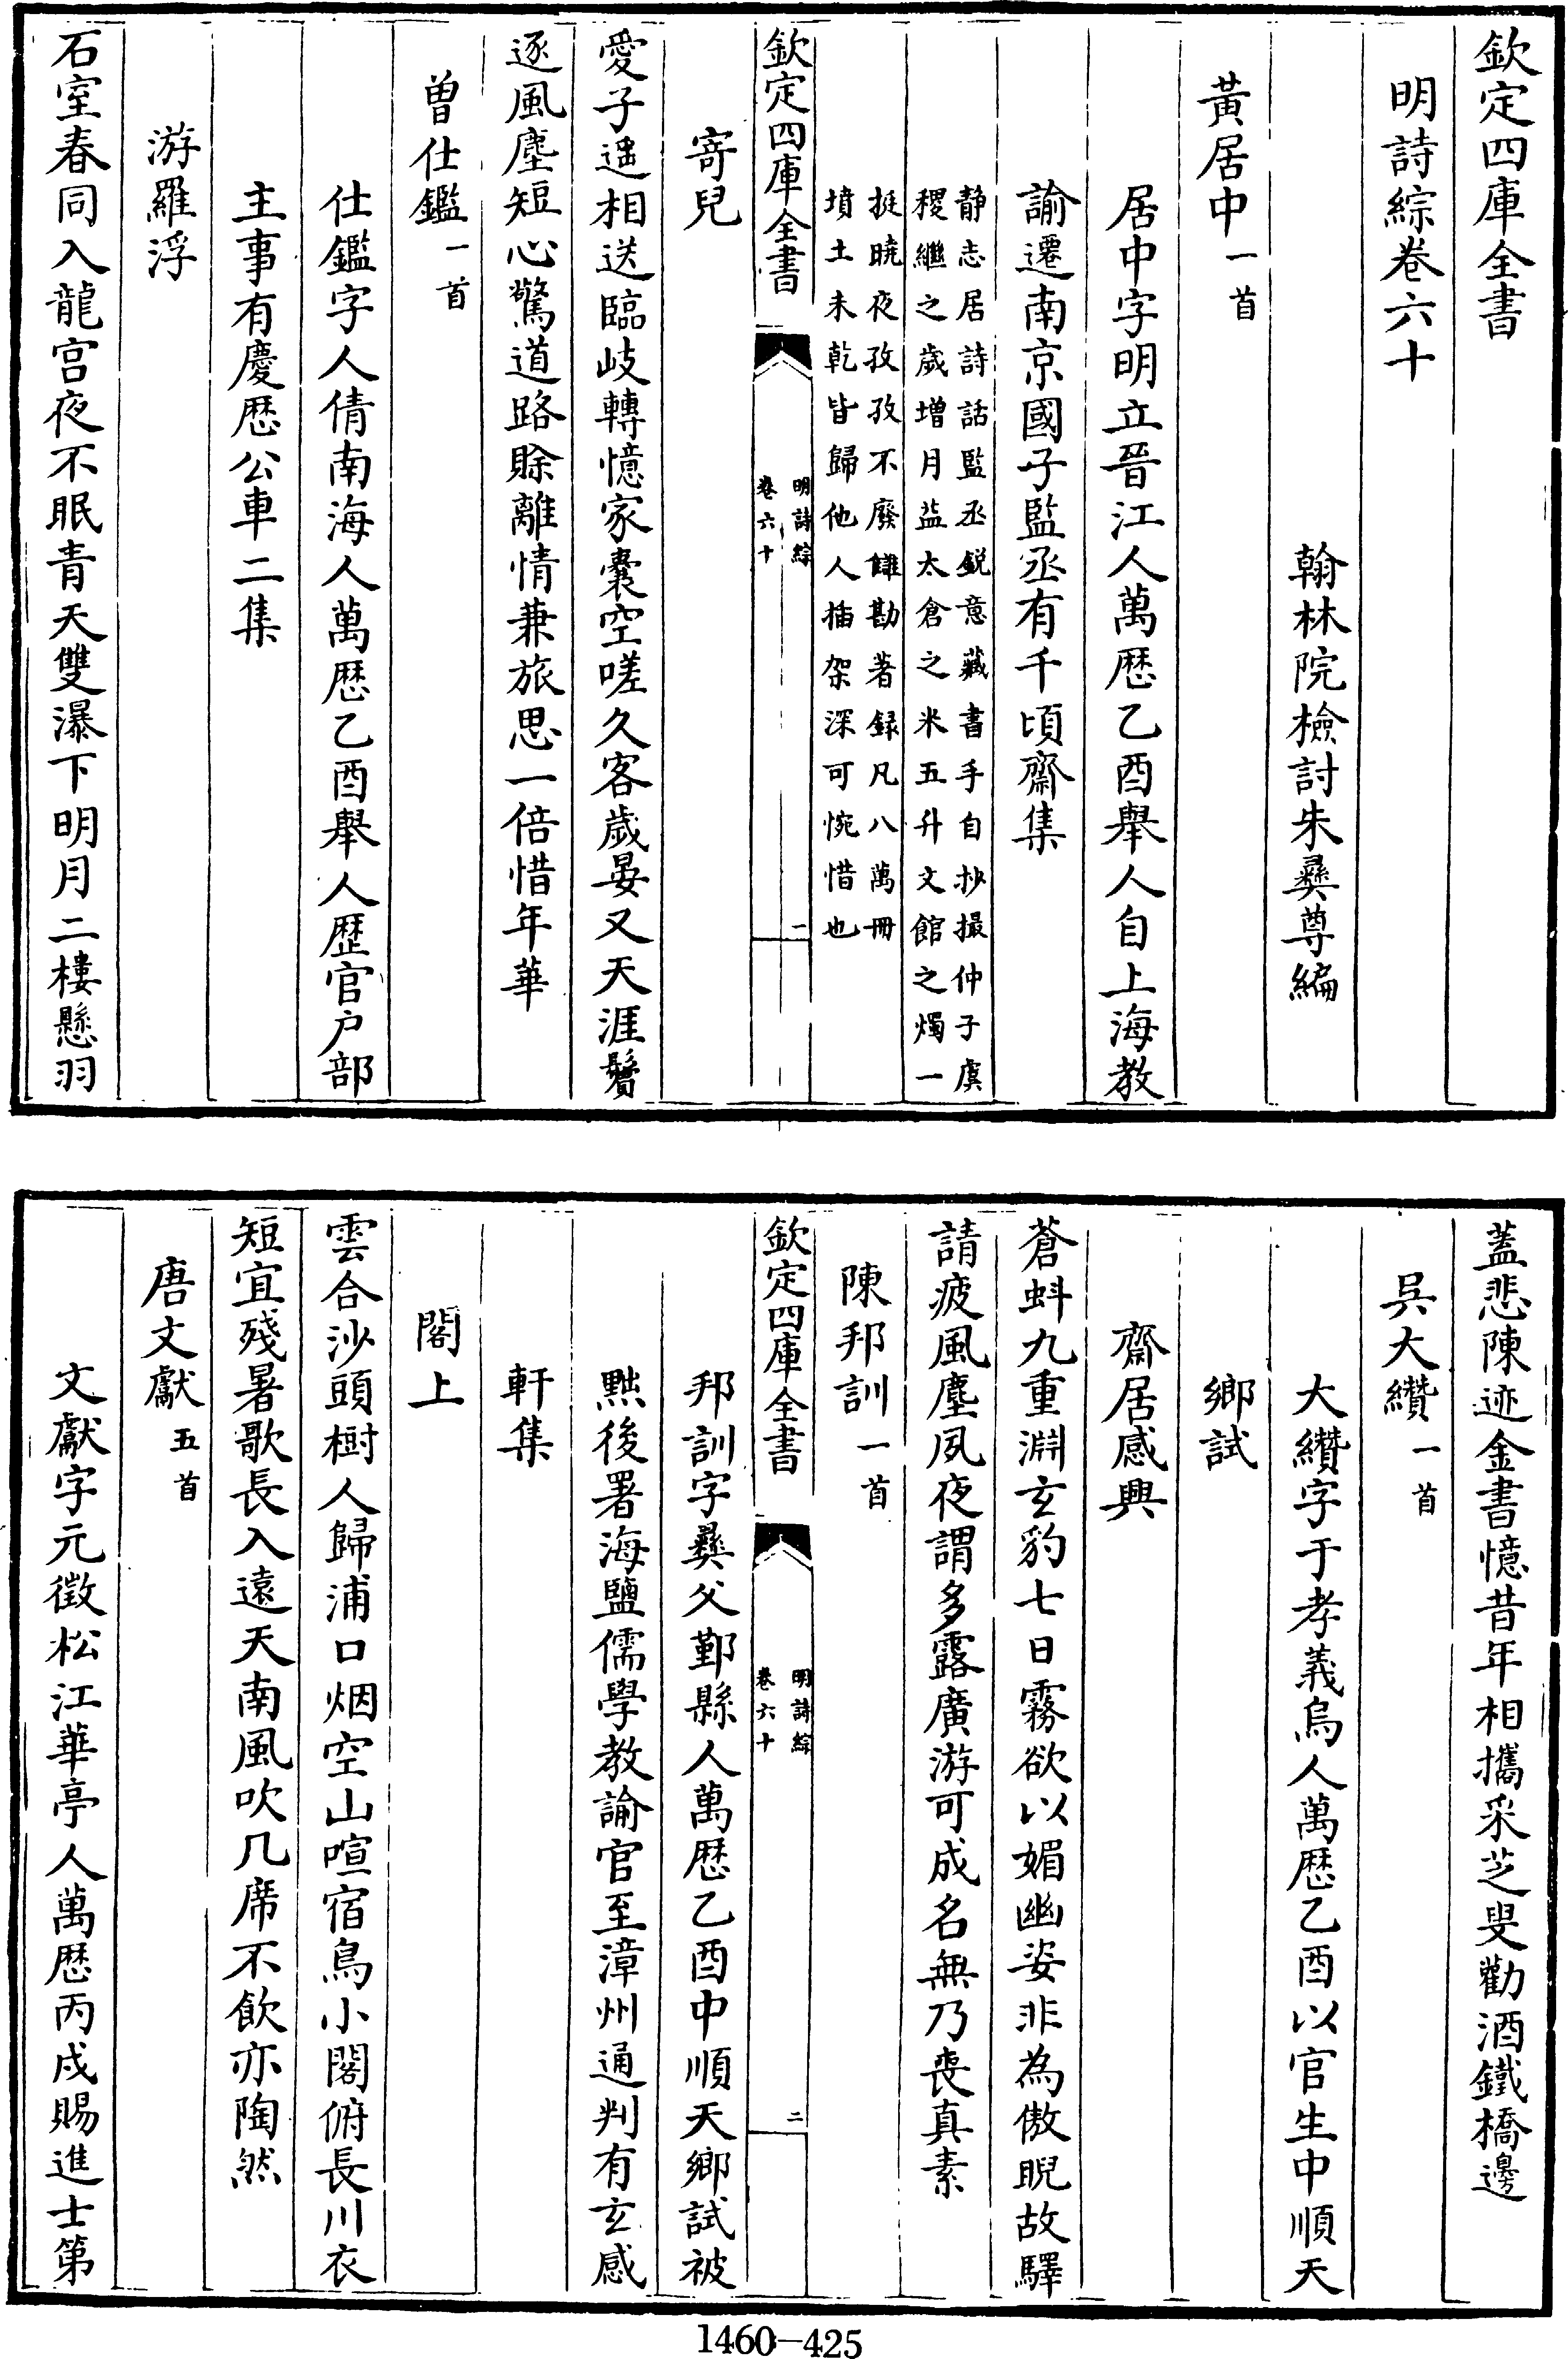 欽定四庫全書
明詩綜卷六十
翰林院檢討朱彝尊編
黃居中一首
居中字明立晉江人萬歴乙酉舉人自上海教
諭遷南京國子監丞有千頃齋集
静志居詩話監丞鋭意藏書手自抄撮仲子虞
稷繼之歲增月益太倉之米五升文館之燭一
挺曉夜孜孜不廢讎勘著録凡八萬冊
墳土未乾皆歸他人插架深可惋惜也
欽定四庫全書
明詩綜
卷六十
一
寄兒
愛子遥相送臨岐轉憶家囊空嗟久客歲晏又天涯鬢
逐風塵短心驚道路賒離情兼旅思一倍惜年華
曾仕鑑一首
仕鑑字人倩南海人萬歴乙酉舉人歴官户部
主事有慶歴公車二集
游羅浮
石室春同入龍宫夜不眠青天雙瀑下明月二樓懸羽
蓋悲陳迹金書憶昔年相攜采芝叟勸酒鐵橋邊
吳大纘一首
大纘字于孝義烏人萬歴乙酉以官生中順天
鄉試
齋居感興
蒼蚪九重淵玄豹七日霧欲以媚幽姿非為傲睨故驛
請疲風塵夙夜謂多露廣游可成名無乃喪真素
陳邦訓一首
欽定四庫全書
明詩綜
卷六十
二
邦訓字彝父鄞縣人萬歴乙酉中順天鄉試被
黜後署海鹽儒學教諭官至漳州通判有玄感
軒集
閣上
雲合沙頭樹人歸浦口烟空山喧宿鳥小閣俯長川衣
短宜殘暑歌長入遠天南風吹几席不飲亦陶然
唐文獻五首
文獻字元徵松江華亭人萬歴丙戌賜進士第
1460—425